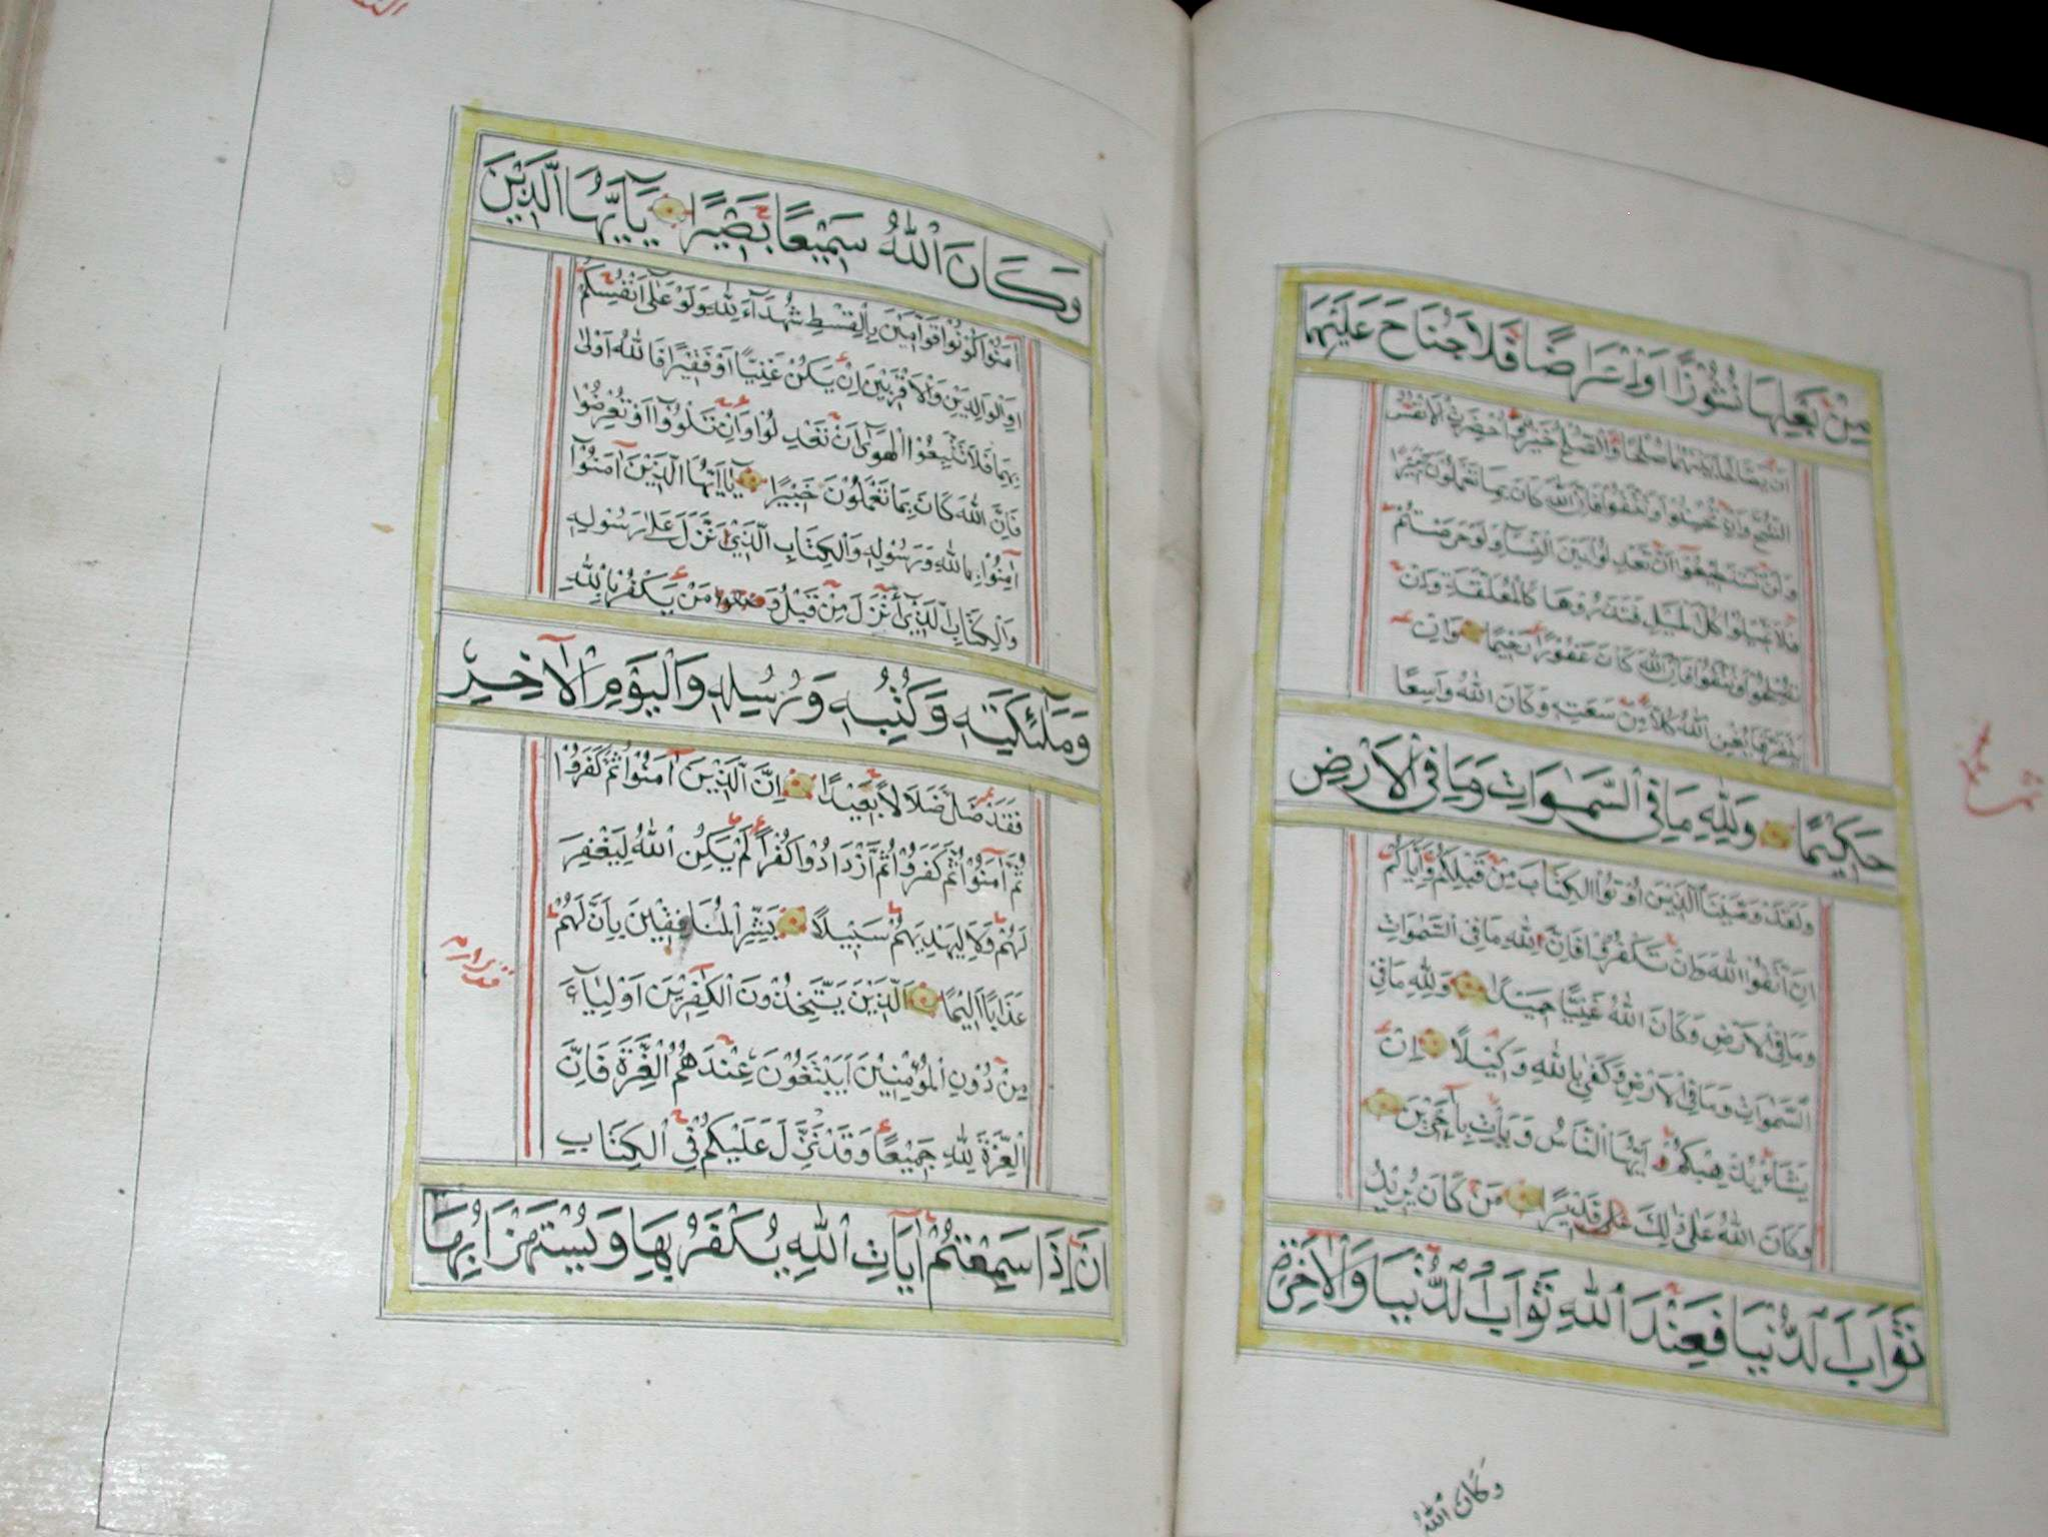 مِنْ بَعْلِهَا نُشُوزًا اَوْ اِعْرَاضًا فَلَا جُنَاحَ عَلَيْهِمَا
اَنْ يُصْلِحَا بَيْنَهُمَا صُلْحًا وَالصُّلْحُ خَيْرٌ وَاُحْضِرَتِ الْاَنْفُسُ
الشُّحَّ وَاِنْ تُحْسِنُوا وَتَتَّقُوا فَاِنَّ اللّٰهَ كَانَ بِمَا تَعْمَلُونَ خَبِيرًا
وَلَنْ تَسْتَطِيعُوا اَنْ تَعْدِلُوا بَيْنَ النِّسَآءِ وَلَوْ حَرَصْتُمْ
فَلَا تَمِيلُوا كُلَّ الْمَيْلِ فَتَذَرُوهَا كَالْمُعَلَّقَةِ وَاِنْ
تُصْلِحُوا وَتَتَّقُوا فَاِنَّ اللّٰهَ كَانَ غَفُورًا رَحِيمًا وَاِنْ
يَتَفَرَّقَا يُغْنِ اللّٰهُ كُلًّا مِنْ سَعَتِهِ وَكَانَ اللّٰهُ وَاسِعًا
حَكِيْمًا وَلِلّٰهِ مَا فِى السَّمٰوَاتِ وَمَا فِى الْاَرْضِ
وَلَقَدْ وَصَّيْنَا الَّذِينَ اُوتُوا الْكِتَابَ مِنْ قَبْلِكُمْ وَاِيَّاكُمْ
اَنِ اتَّقُوا اللّٰهَ وَاِنْ تَكْفُرُوا فَاِنَّ لِلّٰهِ مَا فِى السَّمٰوَاتِ
وَمَا فِى الْاَرْضِ وَكَانَ اللّٰهُ غَنِيًّا حَمِيْدًا وَلِلّٰهِ مَا فِى
السَّمٰوَاتِ وَمَا فِى الْاَرْضِ وَكَفٰى بِاللّٰهِ وَكِيْلًا اِنْ
يَشَاْ يُذْهِبْكُمْ اَيُّهَا النَّاسُ وَيَاْتِ بِاٰخَرِيْنَ
وَكَانَ اللّٰهُ عَلٰى ذٰلِكَ قَدِيْرًا مَنْ كَانَ يُرِيْدُ
ثَوَابَ الدُّنْيَا فَعِنْدَ اللّٰهِ ثَوَابُ الدُّنْيَا وَالْاٰخِرَةِ
وَكَانَ اللّٰهُ
وَكَانَ اللّٰهُ سَمِيْعًا بَصِيْرًا يَآ اَيُّهَا الَّذِيْنَ
اٰمَنُوْا كُوْنُوْا قَوَّامِيْنَ بِالْقِسْطِ شُهَدَآءَ لِلّٰهِ وَلَوْ عَلٰى اَنْفُسِكُمْ
اَوِ الْوَالِدَيْنِ وَالْاَقْرَبِيْنَ اِنْ يَكُنْ غَنِيًّا اَوْ فَقِيْرًا فَاللّٰهُ اَوْلٰى
بِهِمَا فَلَا تَتَّبِعُوْا الْهَوٰٓى اَنْ تَعْدِلُوْا وَاِنْ تَلْوُوْا اَوْ تُعْرِضُوْا
فَاِنَّ اللّٰهَ كَانَ بِمَا تَعْمَلُوْنَ خَبِيْرًا يَآ اَيُّهَا الَّذِيْنَ اٰمَنُوْٓا
اٰمِنُوْا بِاللّٰهِ وَرَسُوْلِهِ وَالْكِتَابِ الَّذِيْ نَزَّلَ عَلٰى رَسُوْلِهِ
وَالْكِتَابِ الَّذِيْٓ اَنْزَلَ مِنْ قَبْلُ وَمَنْ يَكْفُرْ بِاللّٰهِ
وَمَلٰٓئِكَتِهِ وَكُتُبِهِ وَرُسُلِهِ وَالْيَوْمِ الْاٰخِرِ
فَقَدْ ضَلَّ ضَلَالًا بَعِيْدًا اِنَّ الَّذِيْنَ اٰمَنُوْا ثُمَّ كَفَرُوْا
ثُمَّ اٰمَنُوْا ثُمَّ كَفَرُوْا ثُمَّ ازْدَادُوْا كُفْرًا لَمْ يَكُنِ اللّٰهُ لِيَغْفِرَ
لَهُمْ وَلَا لِيَهْدِيَهُمْ سَبِيْلًا بَشِّرِ الْمُنَافِقِيْنَ بِاَنَّ لَهُمْ
عَذَابًا اَلِيْمًا اَلَّذِيْنَ يَتَّخِذُوْنَ الْكَافِرِيْنَ اَوْلِيَآءَ
مِنْ دُوْنِ الْمُؤْمِنِيْنَ اَيَبْتَغُوْنَ عِنْدَهُمُ الْعِزَّةَ فَاِنَّ
الْعِزَّةَ لِلّٰهِ جَمِيْعًا وَقَدْ نَزَّلَ عَلَيْكُمْ فِى الْكِتَابِ
اَنْ اِذَا سَمِعْتُمْ اٰيَاتِ اللّٰهِ يُكْفَرُ بِهَا وَيُسْتَهْزَاُ بِهَا